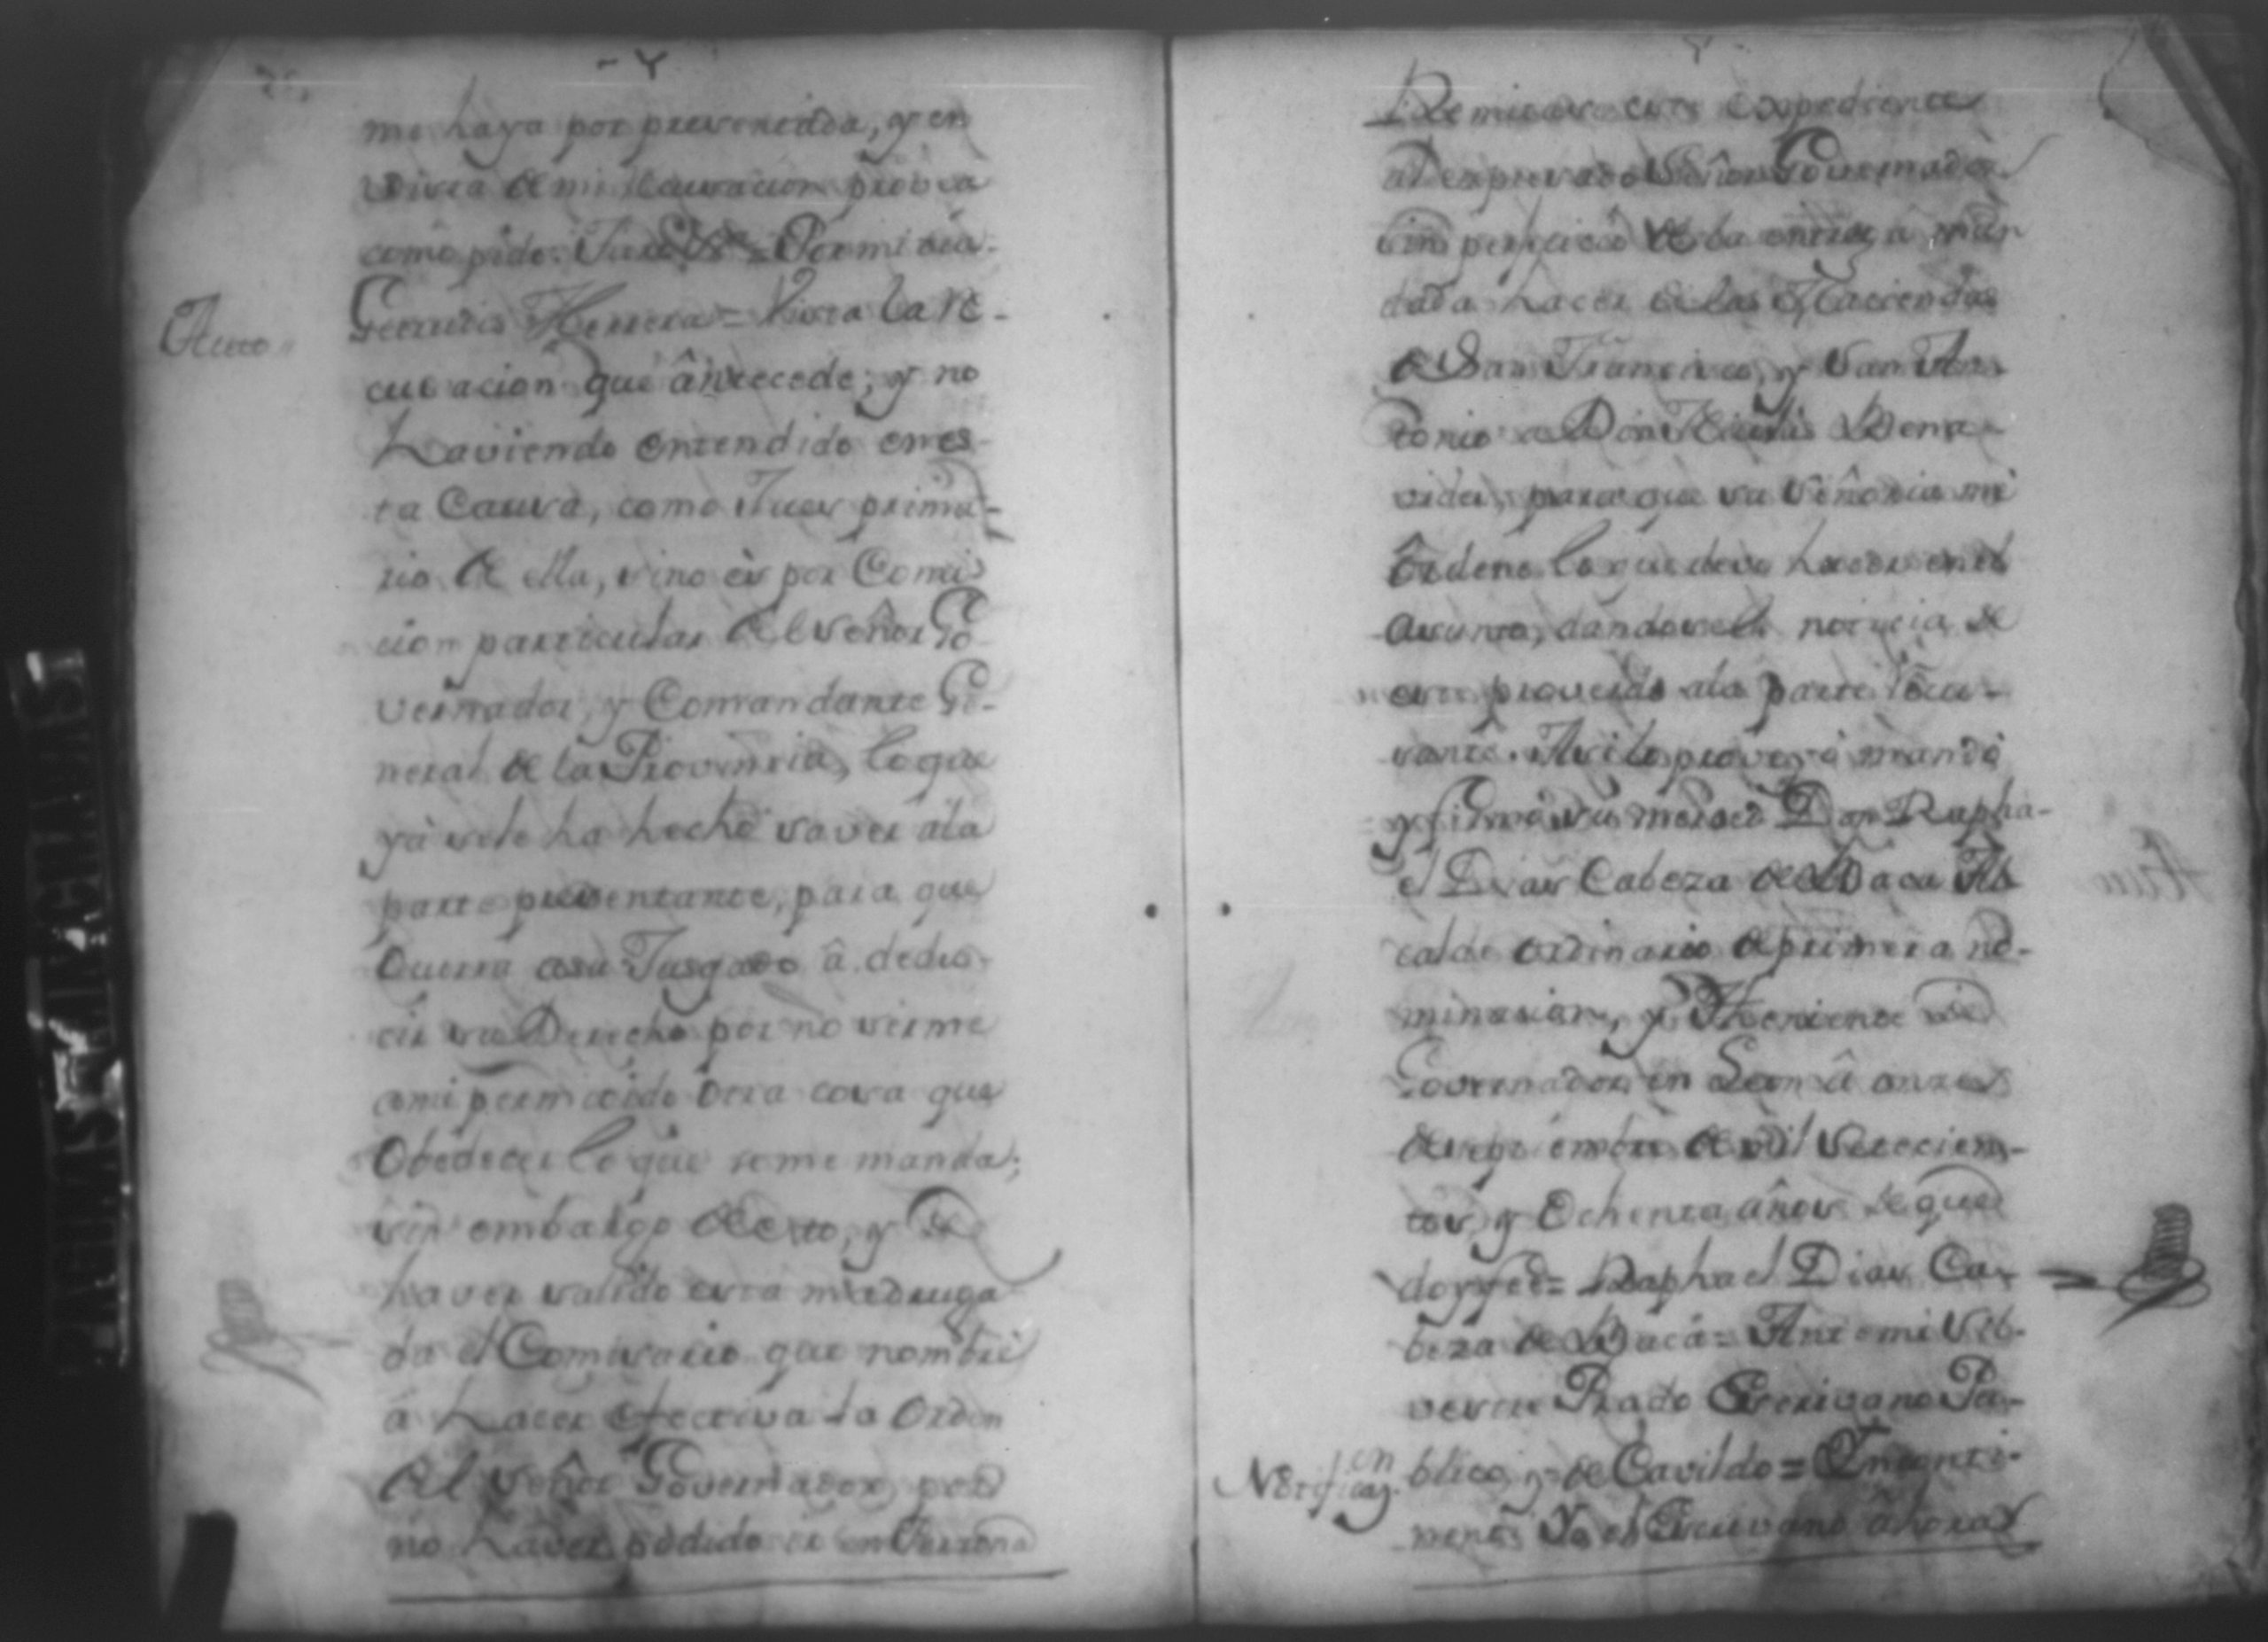 me haya por prevenida, y en
vista de mi recusacion provea
como pido. Juro &ra = Por mi ôcia.
Auto.
Gertrudis Herrera = Vista la re-
cusacion que ântecede; y no
haviendo entendido en es-
ta Causa, como Juez prima-
rio de ella, sino es por Comi-
cion particular del señor Go-
vernador, y Comandante Ge-
neral de la Provincia, lo que
yà sele ha hecho saver ala
parte presentante, para que
Ocurra asu Jusgado â dedu-
cir su Derecho por no serme
ami permitido otra cosa que
Obedecer lo que seme manda;
sin embargo de esto, y de
haver salido esta madruga
da el Comisario que nombré
á hacer efectiva la Orden
del señor Governador por
no haver podido ir en Persona
Remitase este expediente
al expresado Señor Governador
sin perjuicio de la entrega man
dada hacer de las Haciendas
de San Francisco, y San An-
tonio a Don Bena-
vides, para que su Señoria me
Ordene lo que devo hacer en el
asunto, dandosele noticia de
este proveido ala parte Ocur-
rante. Asi lo proveyó mandó
y firmó su merced Don Rapha-
el Dias Cabeza de Baca Al-
calde ordinario de primera no-
minasion, y Theniente de
Governador en Leon â onze
de septiembre de mil setecien-
tos y Ochenta años de que
doy fee = Raphael Dias Ca-
beza de Baca = Ante mi Sil-
vestre Prado Escrivano Pu-
blico, y de Cavildo = Inconti-
Notificaz.on
menti Yo el Escrivano âhora